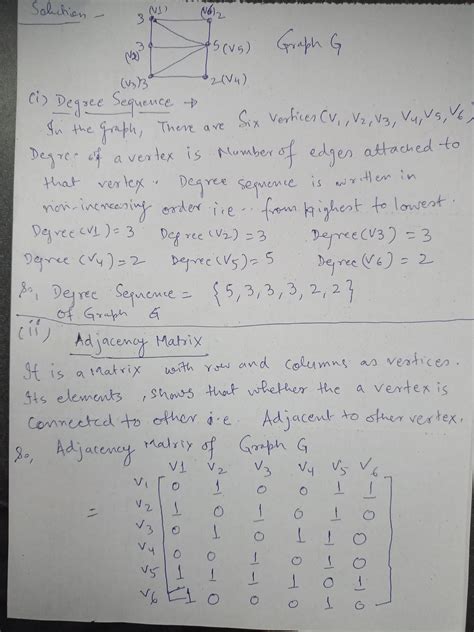 Solution -
(V1)
3
(V6)
2
3
(V2)
5 (V5)
Graph G
(V3) 3
2 (V4)
(i) Degree Sequence →
In the Graph, There are Six vertices (V1, V2, V3, V4, V5, V6,
Degree of a vertex is Number of edges attached to
that vertex. Degree sequence is written in
non-increasing order i.e.. from highest to lowest.
Degree (V1) = 3 Degree (V2) = 3 Degree (V3) = 3
Degree (V4) = 2 Degree (V5) = 5 Degree (V6) = 2
So, Degree Sequence = {5, 3, 3, 3, 2, 2}
of Graph G
(ii) Adjacency Matrix
It is a Matrix with row and columns as vertices.
Its elements, shows that whether the a vertex is
Connected to other i.e. Adjacent to other vertex.
So, Adjacency Matrix of Graph G
V1 V2 V3 V4 V5 V6
V1 0 1 0 0 1 1
V2 1 0 1 0 1 0
=
V3 0 1 0 1 1 0
V4 0 0 1 0 1 0
V5 1 1 1 1 0 1
V6 1 0 0 0 1 0